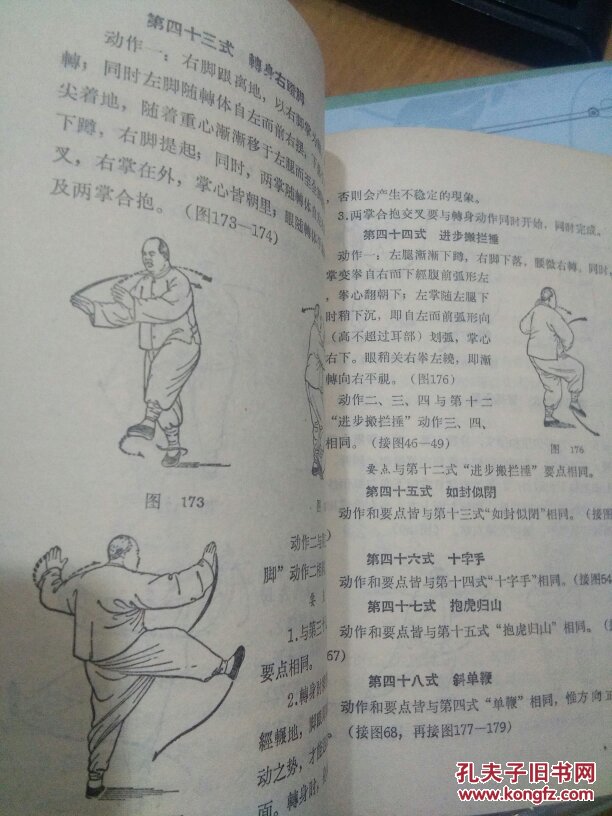 第四十三式　轉身右蹬脚
动作一：右脚跟离地，以右脚掌为
轉；同时左脚随轉体自左而前右摆，下
尖着地，随着重心漸漸移于左腿而至左
下蹲，右脚提起；同时，两掌随轉体
叉，右掌在外，掌心皆朝里；眼随轉体
及两掌合抱。（图173—174）
图　173
动作二与
脚”动作二
要
1.与第三十
要点相同。
2.轉身时
經輾地，脚跟
动之势，才能
面。轉身时，
67)
否则会产生不稳定的现象。
3.两掌合抱交叉要与轉身动作同时开始，同时完成。
第四十四式　进步搬拦捶
动作一：左腿漸漸下蹲，右脚下落，腰微右轉。同时，
掌变拳自右而下經腹前弧形左
，拳心翻朝下；左掌随左腿下
时稍下沉，即自左而前弧形向
（高不超过耳部）划弧，掌心
右下。眼稍关右拳左繞，即漸
轉向右平視。（图176）
图　176
动作二、三、四与第十二
“进步搬拦捶”动作三、四、
相同。（接图46—49）
要点与第十二式“进步搬拦捶”要点相同。
第四十五式　如封似閉
动作和要点皆与第十三式“如封似閉”相同。（接图
第四十六式　十字手
动作和要点皆与第十四式“十字手”相同。（接图54
第四十七式　抱虎归山
动作和要点皆与第十五式“抱虎归山”相同。（
第四十八式　斜单鞭
动作和要点皆与第四式“单鞭”相同，惟方向正
（接图68，再接图177—179）
孔夫子旧书网
www.kongfz.com